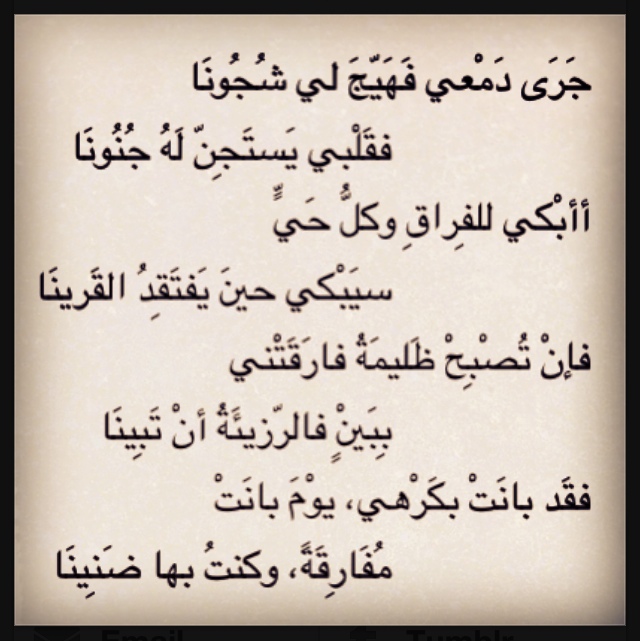 جَرَى دَمْعي فَهَيّجَ لي شُجُونَا
فقَلْبي يَستَجنِّ لَهُ جُنُونَا
أأبْكي للفِراقِ وكلُّ حَيٍّ
سيَبْكي حينَ يَفتَقِدُ القَرينَا
فإنْ تُصْبِحْ ظَليمَةُ فارَقَتْني
بِبَينٍ فالرّزيئَةُ أنْ تَبِينَا
فقَد بانَتْ بكَرْهي، يوْمَ بانَتْ
مُفَارِقَةً، وكنتُ بها ضَنِينَا
Email
Tumblr